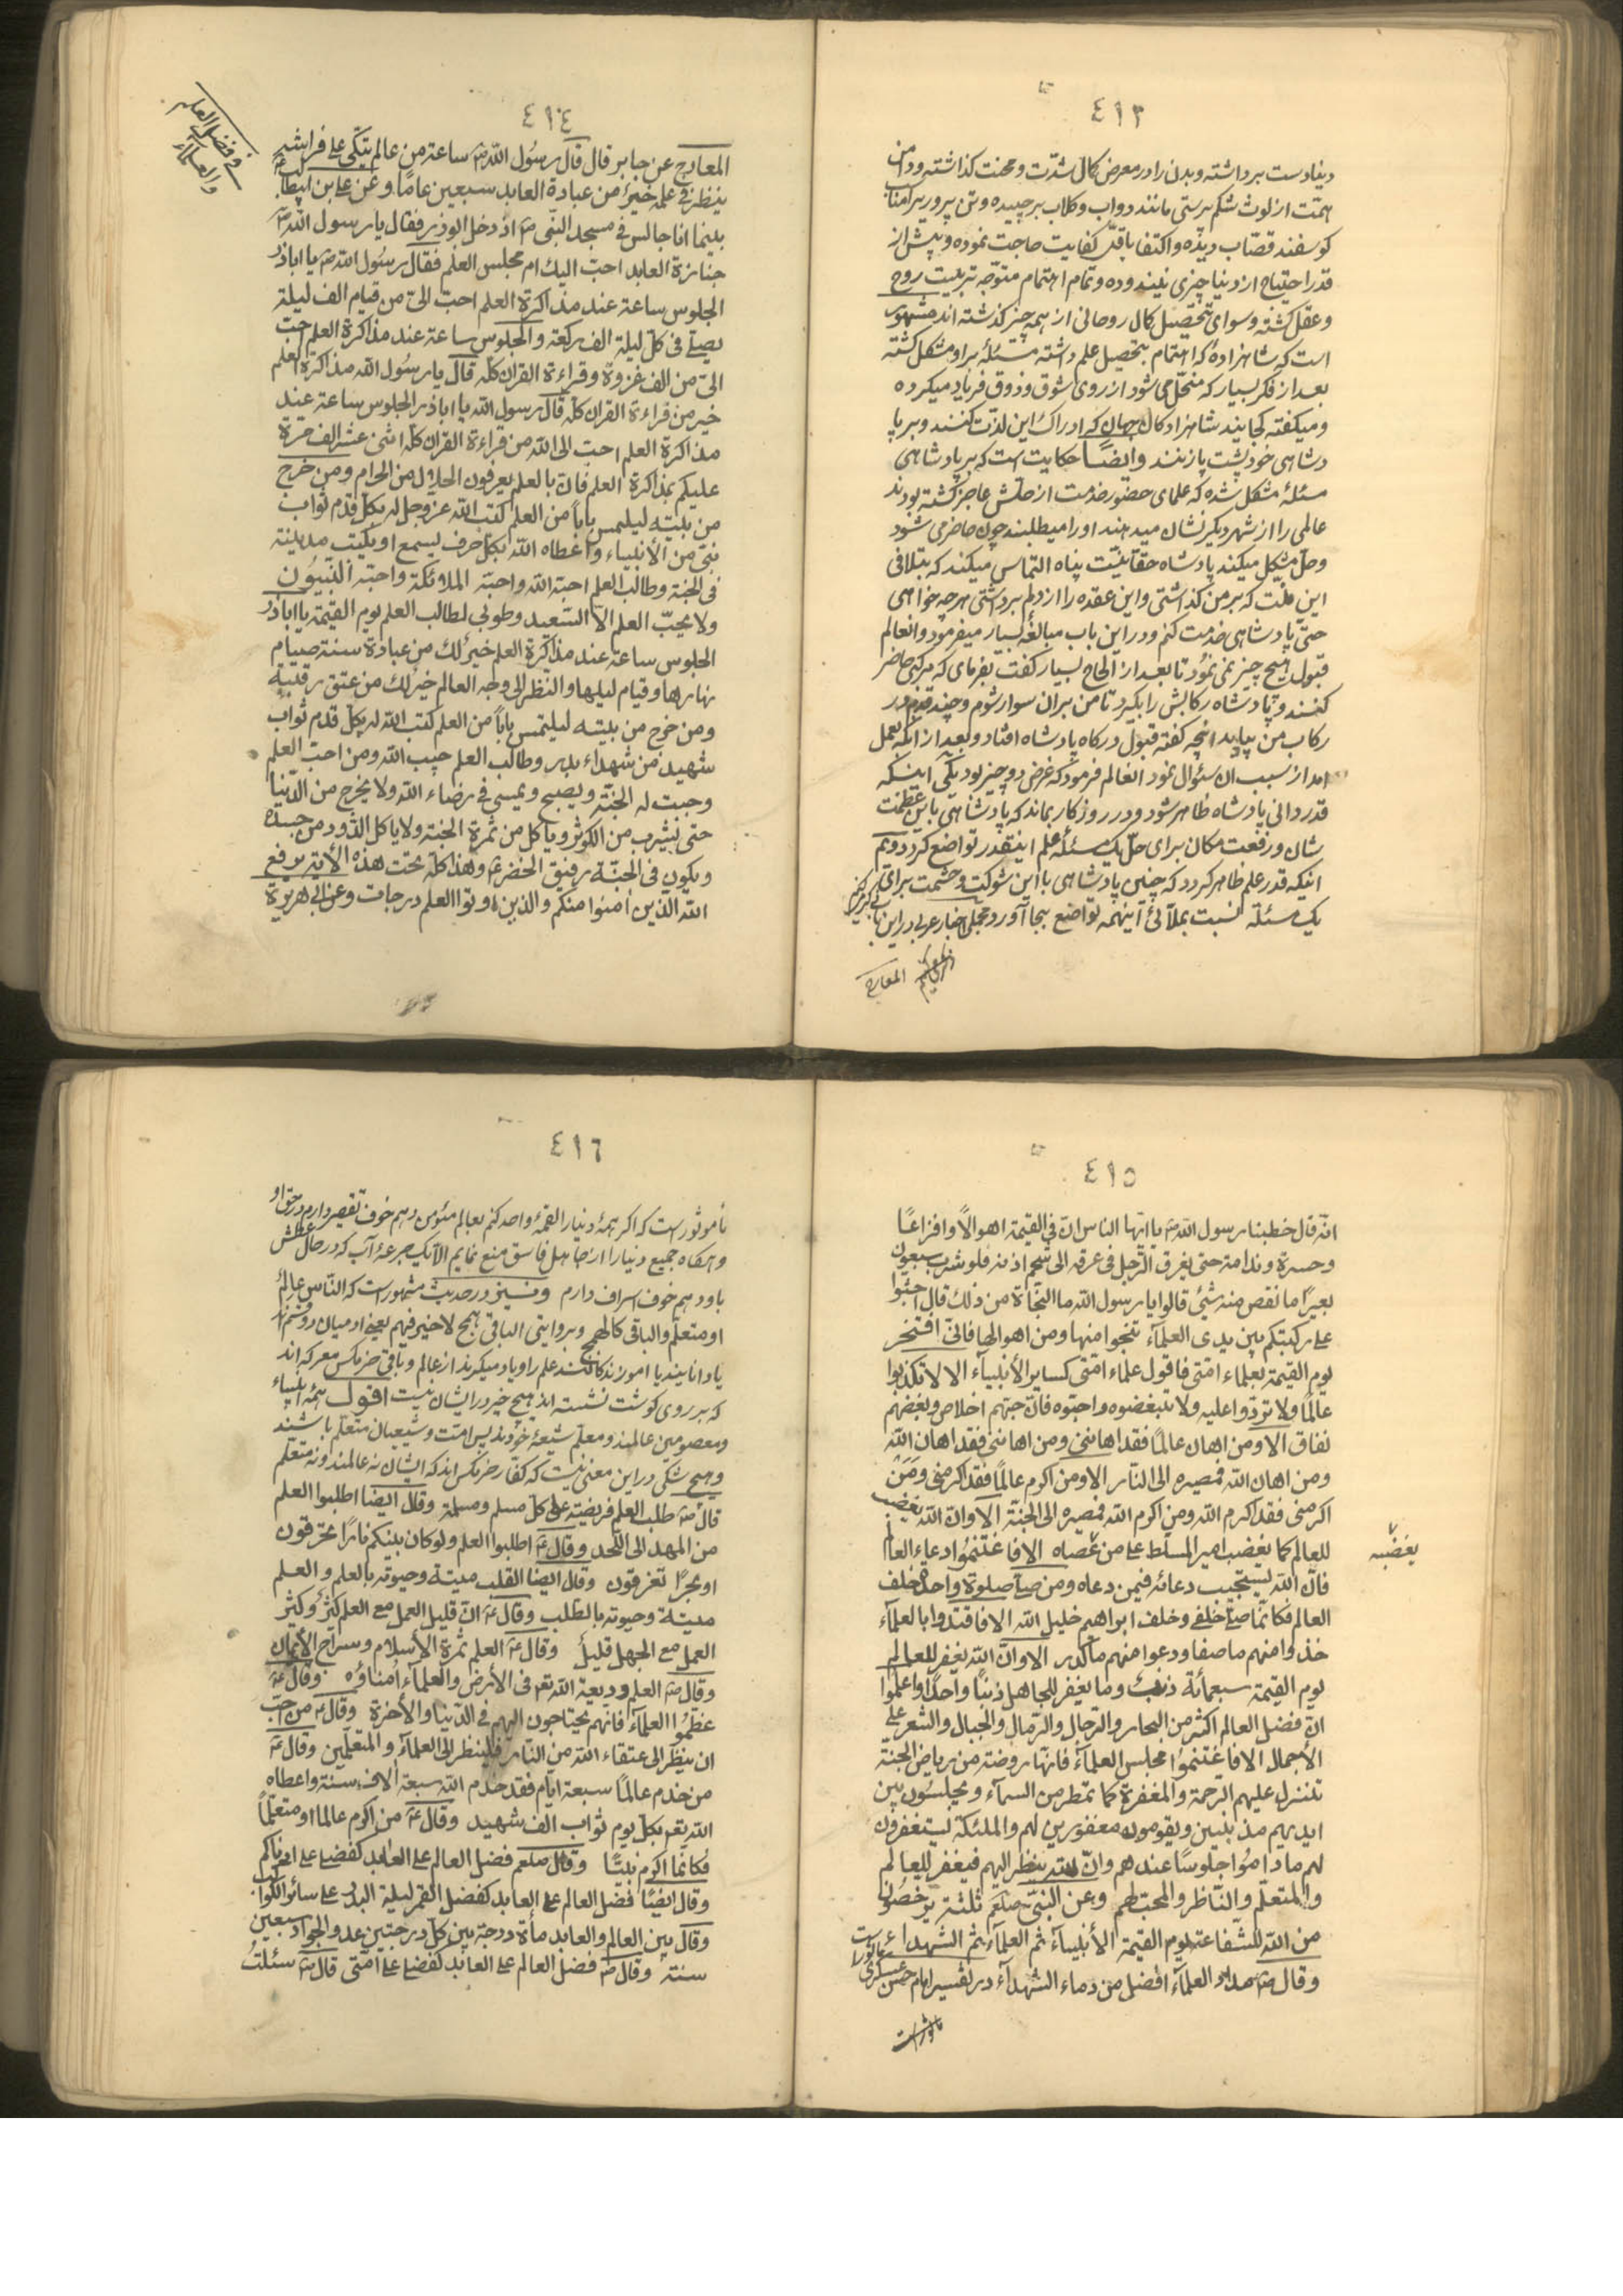 ٤١٣
دنیا دست برداشته و بدن را در معرض کمال شدّت و محنت کذاشته و دامن
همّت از لوث شکم پرستی مانند دواب و کلاب برچیده و تن پرور
کوسفند قصّاب دیده و اکتفا باقلّ کفایت حاجت نموده و پیش از
قدر احتیاج از دنیا چیزی نیندوده و تمام اهتمام متوجّه تربیت روح
و عقل کشته و سوای تحصیل کمال روحانی از همه چیز کذشته اند مشهور
است که شاهزادهٔ که اهتمام بتحصیل علم داشته مسئلهٔ براو مشکل کشته
بعد از فکر بسیار که منحلّ می شود از روی شوق و ذوق فریاد میکرده
و میکفته کجایند شاهزادکان جهان که ادراک این لذّت کنند و بر پا
دشاهی خود پشت پا زنند وایضًا حکایت است که بر پادشاهی
مسئلهٔ مشکل شده که علمای حضور خدمت از حلّش عاجز کشته بودند
عالمی را از شهر دیکر نشان میدهند او را میطلبند چون حاضر می شود
و حلّ مشکل میکند پادشاه حقّانیّت پناه التماس میکند که بتلافی
این منّت که بر من کذاشتی و این عقده را از دلم برداشتی هرچه خواهی
حتّی پادشاهی خدمت کنم و در این باب مبالغهٔ بسیار میفرمود و انعالم
قبول هیچ چیز نمی نمود تا بعد از الحاح بسیار کفت بفرمای که مرکبی حاضر
کنند و پادشاه رکابش را بکیرد تا من بران سوار شوم و چند قدم در
رکاب من بیاید انچه کفته قبول درکاه پادشاه افتاد و بعد از انکه بعمل
امد از سبب ان سئوال نمود انعالم فرمود که غرض دو چیز بود یکی اینکه
قدردانی پادشاه ظاهر شود و در روزکار بماند که پادشاهی باین عظمت
شان و رفعت مکان برای حلّ یک مسئلهٔ علم اینقدر تواضع کرد دویم
اینکه قدر علم ظاهر کردد که چنین پادشاهی با این شوکت و حشمت برای
یک مسئلة نسبت بملّائی اینهمه تواضع بجا آورد و مجملی اخبار عربی در این باب
المعارج
٤١٤
فی فضل العلم
والعلماء
المعارج عن جابر قال قال رسول اللّه ص ساعة من عالم یتّکی علی فراشه
ینظر فی علمه خیرٌ من عبادة العابد سبعین عامًا و عن علی بن ابیطالب ع
بینما انا جالس فی مسجد النّبی ص اذ دخل ابوذر فقال یا رسول اللّه ص
جنازة العابد احبّ الیک ام مجلس العلم فقال رسول اللّه ص یا اباذر
الجلوس ساعة عند مذاکرة العلم احبّ الیّ من قیام الف لیلة
یصلّی فی کلّ لیلة الف رکعة والجلوس ساعة عند مذاکرة العلم احبّ
الیّ من الف غزوة و قراءة القران کلّه قال یا رسول اللّه مذاکرة العلم
خیر من قراءة القران کلّه قال رسول اللّه یا اباذر الجلوس ساعة عند
مذاکرة العلم احبّ الی اللّه من قراءة القران کلّه اثنی عشر الف مرّة
علیکم بمذاکرة العلم فانّ بالعلم یعرفون الحلال من الحرام و من خرج
من بیته لیلتمس بابًا من العلم کتب اللّه عزّ و جل له بکلّ قدم ثواب
نبیّ من الأنبیاء و اعطاه اللّه بکلّ حرف یسمع او یکتب مدینة
فی الجنّة و طالب العلم احبّه اللّه و احبّه الملائکة و احبّه النّبیّون
ولا یحبّ العلم الّا السّعید و طوبی لطالب العلم یوم القیمة یا اباذر
الجلوس ساعة عند مذاکرة العلم خیرٌ لک من عبادة سنة صیام
نهارها و قیام لیلها والنّظر الی وجه العالم خیرٌ لک من عتق رقبة
ومن خرج من بیته لیلتمس بابًا من العلم کتب اللّه له بکلّ قدم ثواب
شهید من شهداء بدر و طالب العلم حبیب اللّه و من احبّ العلم
وجبت له الجنّة و یصبح و یمسی فی رضاء اللّه ولا یخرج من الدّنیا
حتّی یشرب من الکوثر و یأکل من ثمرة الجنّة ولا یاکل الدّود من جسده
و یکون فی الجنّة رفیق الخضر ع و هذا کلّه تحت هذه الأیة یرفع
اللّه الّذین امنوا منکم والّذین اوتوا العلم درجات و عن ابی هریرة
٤١٥
انّه قال خطبنا رسول اللّه ص یا ایّها الناس انّ فی القیمة اهوالًا و افزاعًا
و حسرة و ندامة حتّی یغرق الرّجل فی عرقه الی شحم اذنه فلو شرب سبعون
بعیرًا ما نقص منه شیئ قالوا یا رسول اللّه ما النّجاة من ذلک قال اجثوا
علی رکبتکم بین یدی العلمآء تنجوا منها و من اهوالها فانّی افتخر
یوم القیمة بعلماء امّتی فاقول علماء امّتی کسایر الأنبیآء الا لا تکذّبوا
عالمًا ولا تردّوا علیه ولا تبغضوه و احبّوه فانّ حبّهم اخلاص و بغضهم
نفاق الا ومن اهان عالمًا فقد اهاننی و من اهاننی فقد اهان اللّه
و من اهان اللّه فمصیره الی النّار الا ومن اکرم عالمًا فقد اکرمنی و من
اکرمنی فقد اکرم اللّه و من اکرم اللّه فمصیره الی الجنّة ألا و انّ اللّه یغضب
للعالم کما یغضب امیر المسلّط علی من عصاه الا فاغتنموا دعاء العالم
یغضب
فانّ اللّه یستجیب دعائه فیمن دعاه و من صلّی صلوة واحدة خلف
العالم فکانّما صلّی خلفی و خلف ابراهیم خلیل اللّه الا فاقتدوا بالعلمآء
خذوا منهم ما صفا و دعوا منهم ما کدر الا و انّ اللّه یغفر للعالم
یوم القیمة سبعمائة ذنب و ما یغفر للجاهل ذنبًا واحدًا واعلموا
انّ فضل العالم اکثر من البحار والرّجال والرّمال والجبال والشعر علی
الأجمال الا فاغتنموا مجلس العلمآء فانّها روضة من ریاض الجنّة
تنزل علیهم الرّحمة والمغفرة کما تمطر من السمآء و یجلسون بین
ایدیهم مذنبین و یقومون مغفورین لهم والملئکة یستغفرون
لهم ما داموا جلوسًا عندهم و انّ اللّه ینظر الیهم فیغفر للعالم
والمتعلّم والنّاظر والمحبّ لهم و عن النبیّ صلعم ثلثة یرخصون
من اللّه للشّفاعة یوم القیمة الأنبیآء ثمّ العلمآء ثمّ الشهداء
و قال ص مداد العلمآء افضل من دماء الشّهدآء در تفسیر امام حسن عسکری
ماثور است
٤١٦
مأموثور است که اکر همهٔ دنیا را لقمهٔ واحد کنم بعالم مئومن دهم خوف تقصیر دارم در حق او
و هرکاه جمیع دنیا را از جاهل فاسق منع نمایم الّا یک جرعهٔ آب که در حال عطش
باو دهم خوف اسراف دارم و نیز در حدیث مشهور است که النّاس عالمٌ
او متعلّم والباقی کالهمج و بروایتی الباقی همج لا خیر فیهم یعنی ادمیان دو قسم اند
یا دانایند یا اموزندکانند علم را و یاد میکیرند از عالم و باقی خرمکس معرکه اند
که بر روی کوشت نشسته اند هیچ خیر در ایشان نیست اقول همهٔ انبیاء
و معصومین عالمند و معلّم شیعهٔ خودند پس امّت و شیعیان متعلّم باشند
و هیچ شکّی در این معنی نیست که کفّار خرمکس اند که ایشان نه عالمند و نه متعلّم
قال ص طلب العلم فریضة علی کلّ مسلم و مسلمة و قال ایضًا اطلبوا العلم
من المهد الی اللّحد و قال ع اطلبوا العلم ولو کان بینکم نارًا تحرقون
او بحرًا تغرقون و قال ایضا القلب میتة و حیوته بالعلم والعلم
میتة و حیوته بالطّلب و قال ع انّ قلیل العمل مع العلم کثیرٌ و کثیر
العمل مع الجهل قلیلٌ و قال ع العلم ثمرة الأسلام و سراج الأیمان
و قال ص العلم ودیعة اللّه تع فی الأرض والعلمآء اُمناؤه و قال ع
عظّموا العلمآء فانّهم یحتاجون الیهم فی الدّنیا والأخرة و قال ع من احبّ
ان ینظر الی عتقاء اللّه من النّار فلینظر الی العلمآء والمتعلّمین و قال ع
من خدم عالمًا سبعة ایّام فقد خدم اللّه سبعة الاف سنة و اعطاه
اللّه تع بکلّ یوم ثواب الف شهید و قال ع من اکرم عالما او متعلّمًا
فکانّما اکرم نبیًّا و قال صلعم فضل العالم علی العابد کفضلی علی ادناکم
و قال ایضًا فضل العالم علی العابد کفضل القمر لیلة البدر علی سائر الکواکب
و قال بین العالم والعابد مأة درجة بین کلّ درجتین عدو الجواد سبعین
سنة و قال ص فضل العالم علی العابد کفضلی علی امّتی قال ص سئلت